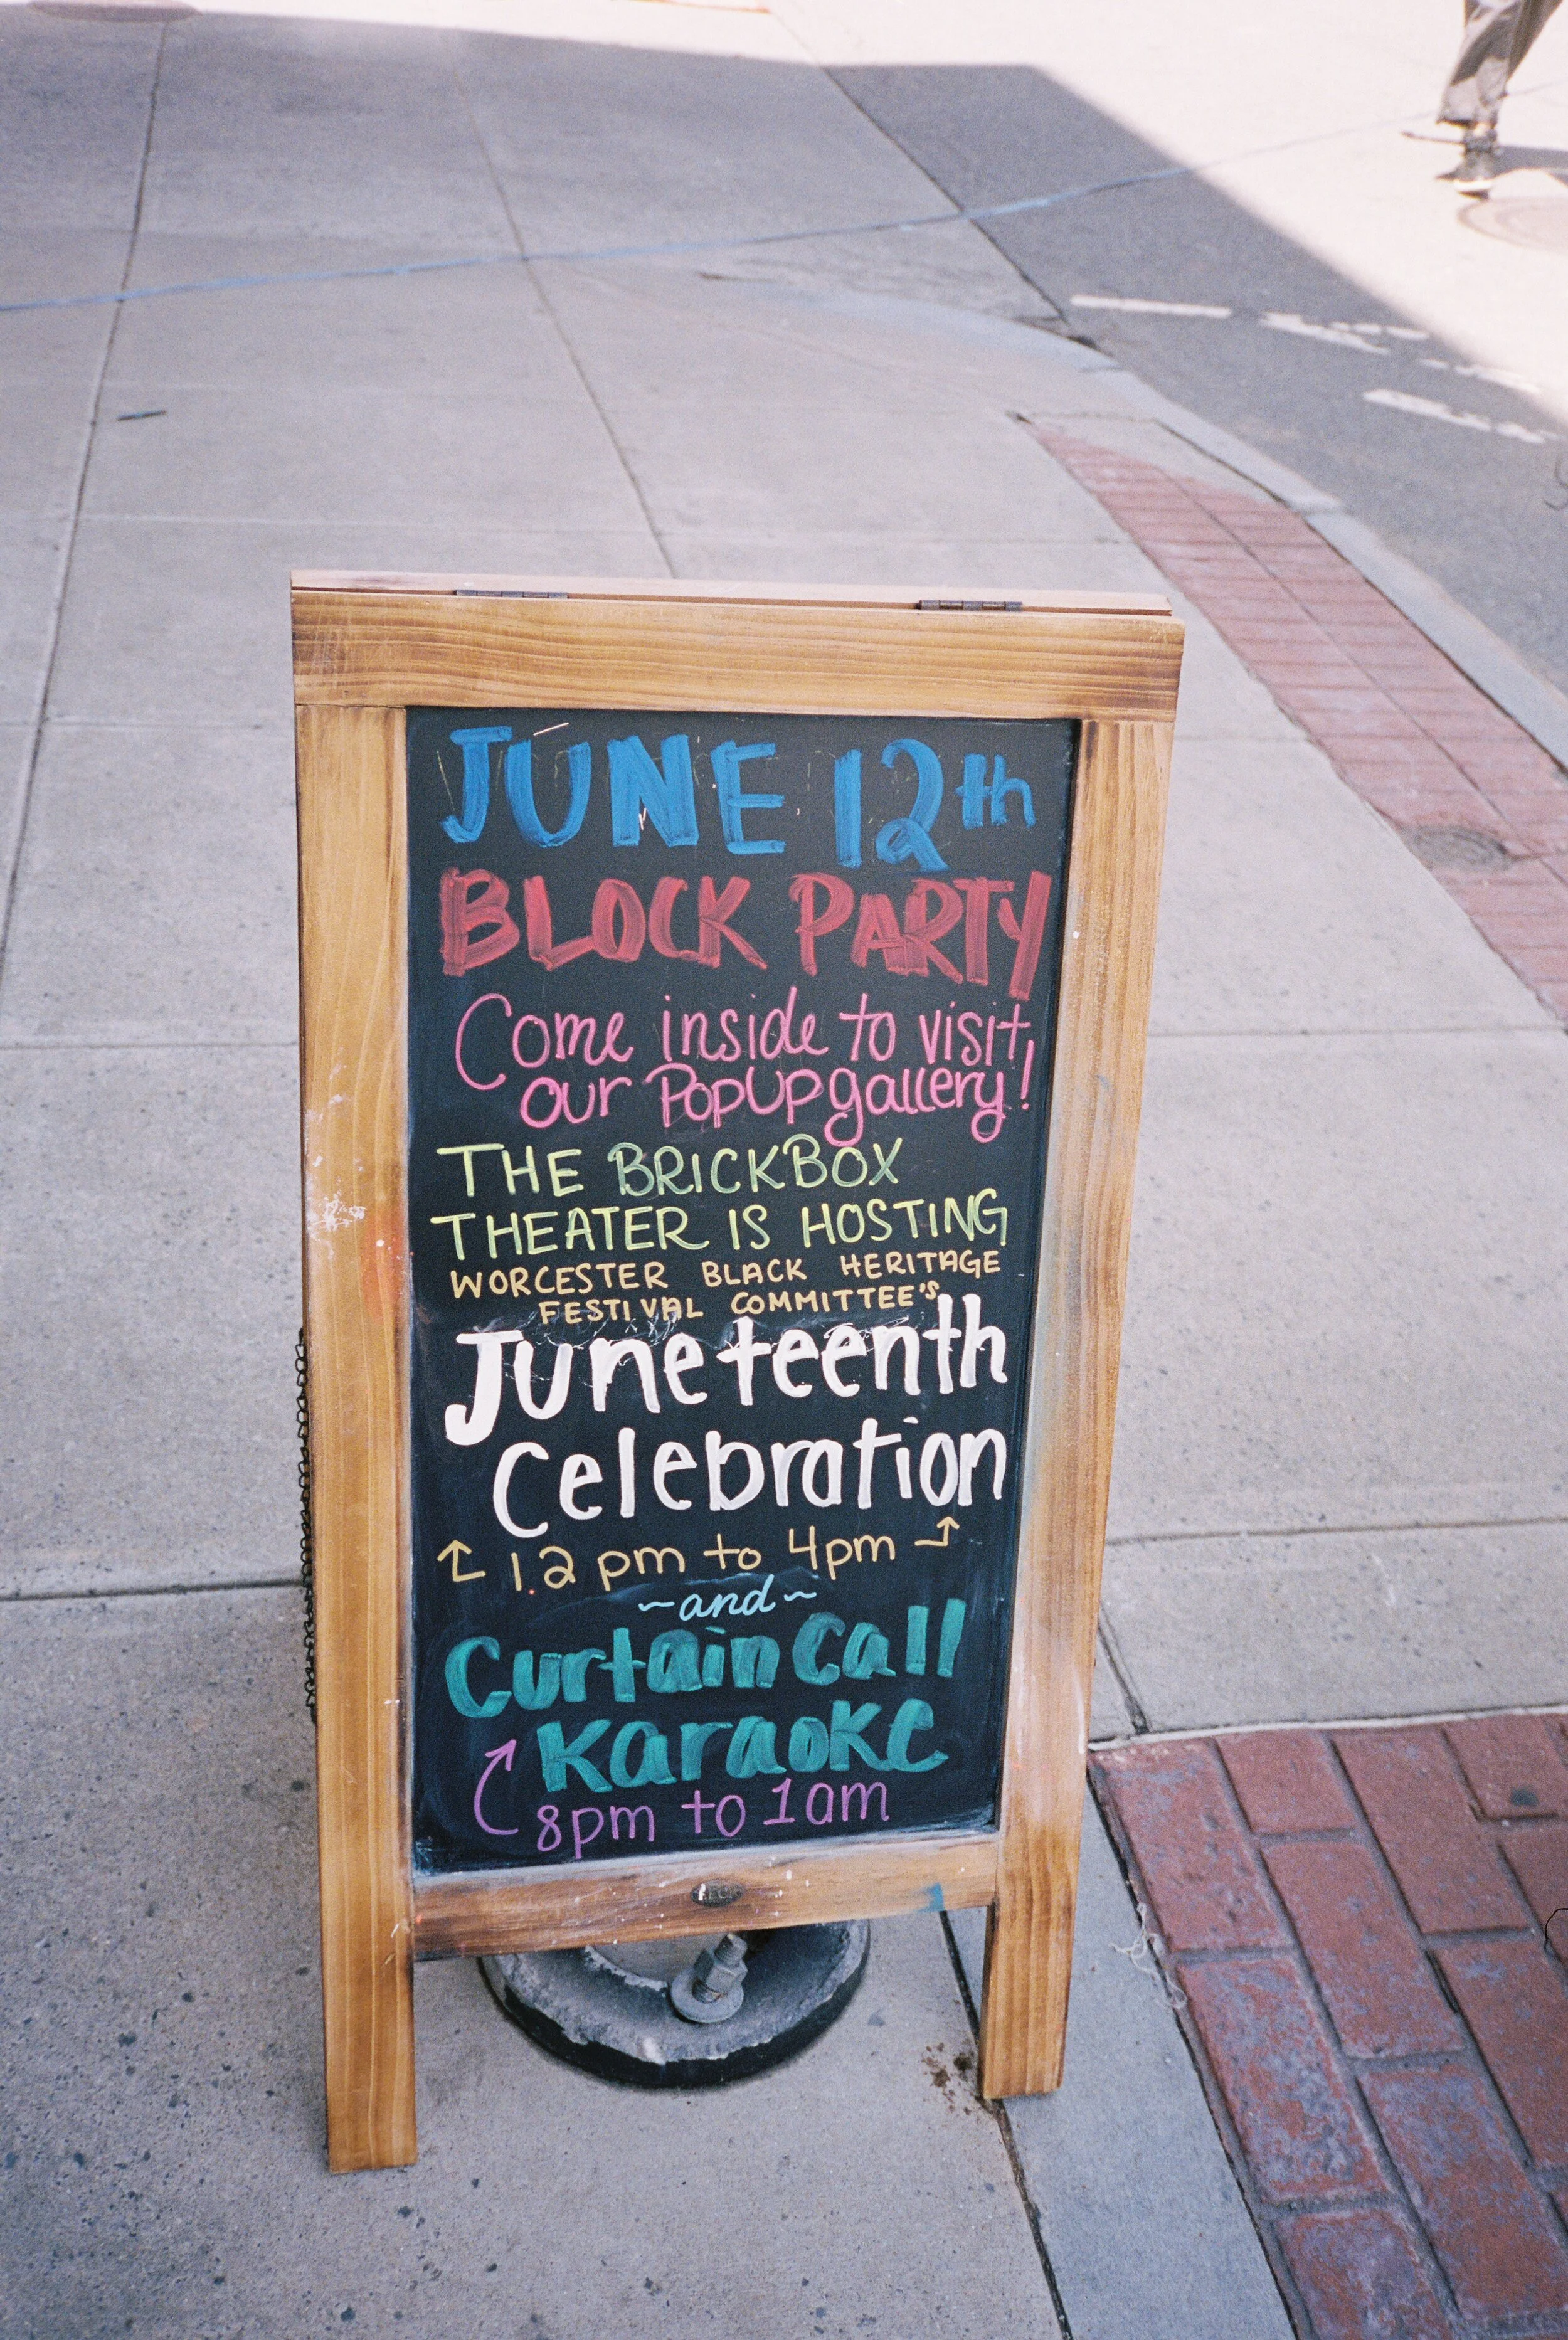 JUNE 12th
BLOCK PARTY
Come inside to visit
our PopUp gallery!
THE BRICKBOX
THEATER IS HOSTING
WORCESTER BLACK HERITAGE
FESTIVAL COMMITTEE'S
Juneteenth
Celebration
12 pm to 4pm
~and~
Curtain Call
Karaoke
8pm to 1am